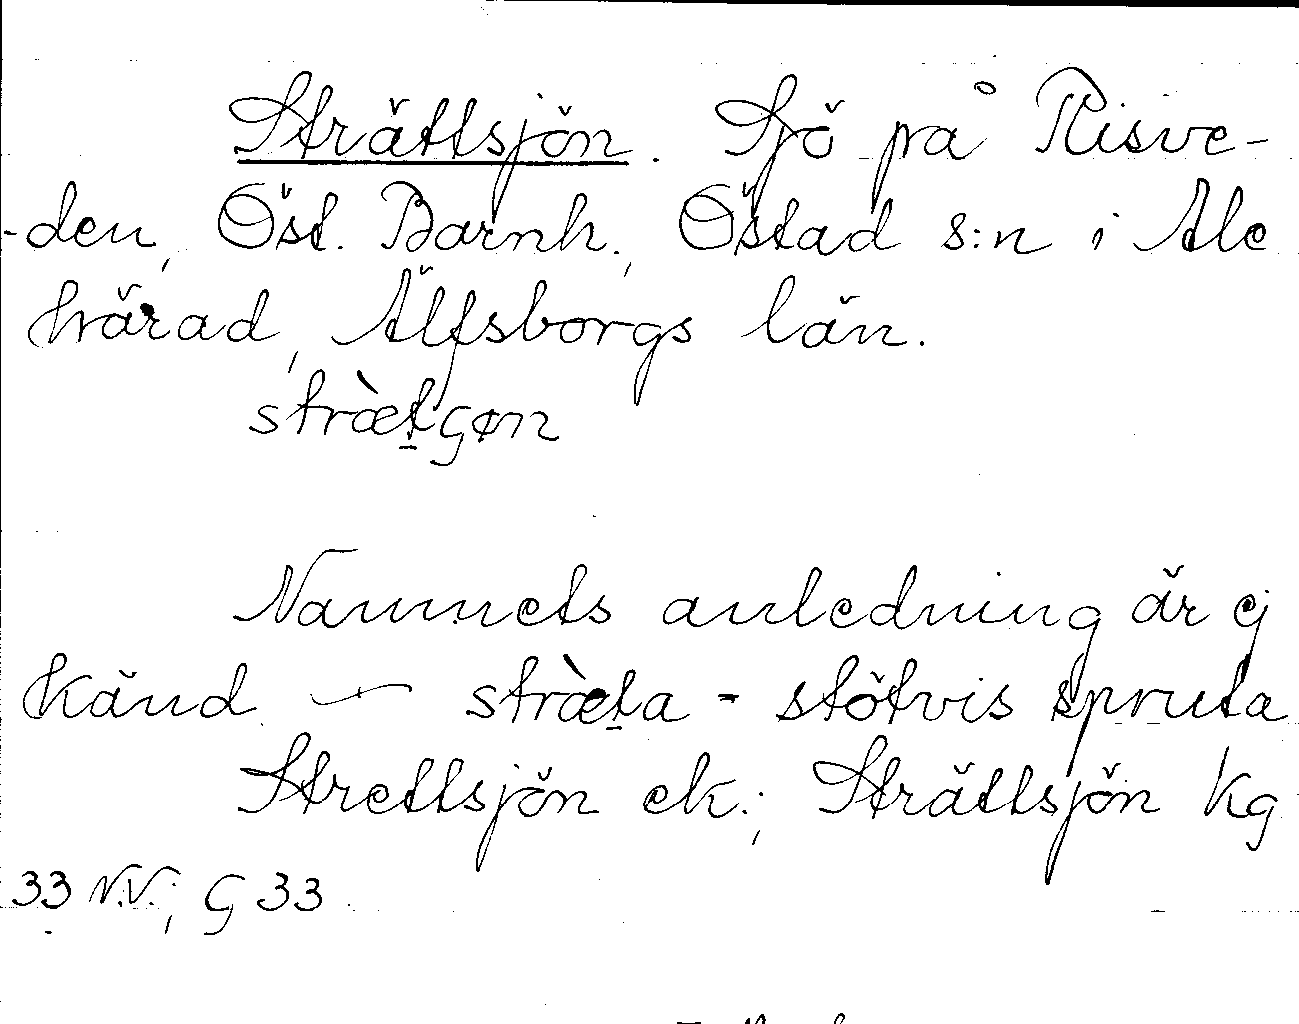 Strättsjön. Sjö på Risve-
-den, Öst. Barnh., Östad s:n i Ale
härad, Älfsborgs län.
stræ̀tçøn
Namnets anledning är ej
känd — stræ̀ta - stötvis spruta
Strettsjön ek.; Strättsjön Kg
33 N.V.; G 33